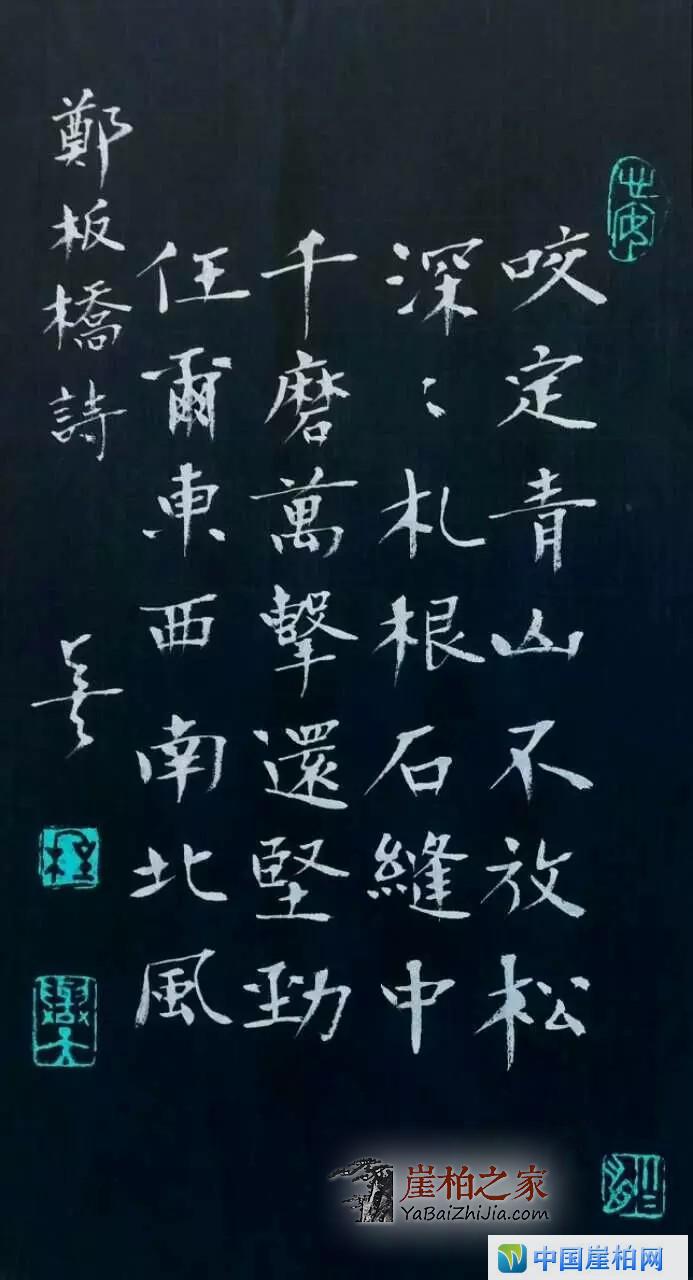 咬定青山不放松
深〻札根石縫中
千磨萬擊還堅勁
任爾東西南北風
鄭板橋詩
崖柏之家
YaBaiZhiJia.com
中国崖柏网